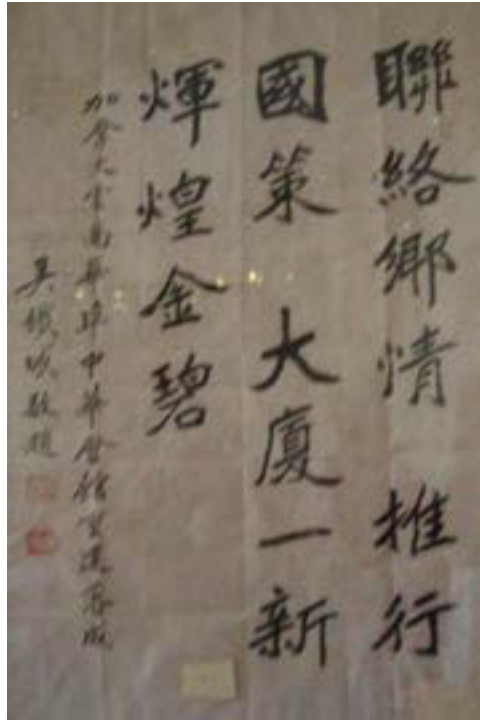 聯絡鄉情 推行
國策 大廈一新
輝煌金碧
加拿大雲高華埠中華會館重建落成
吳鐵城敬題